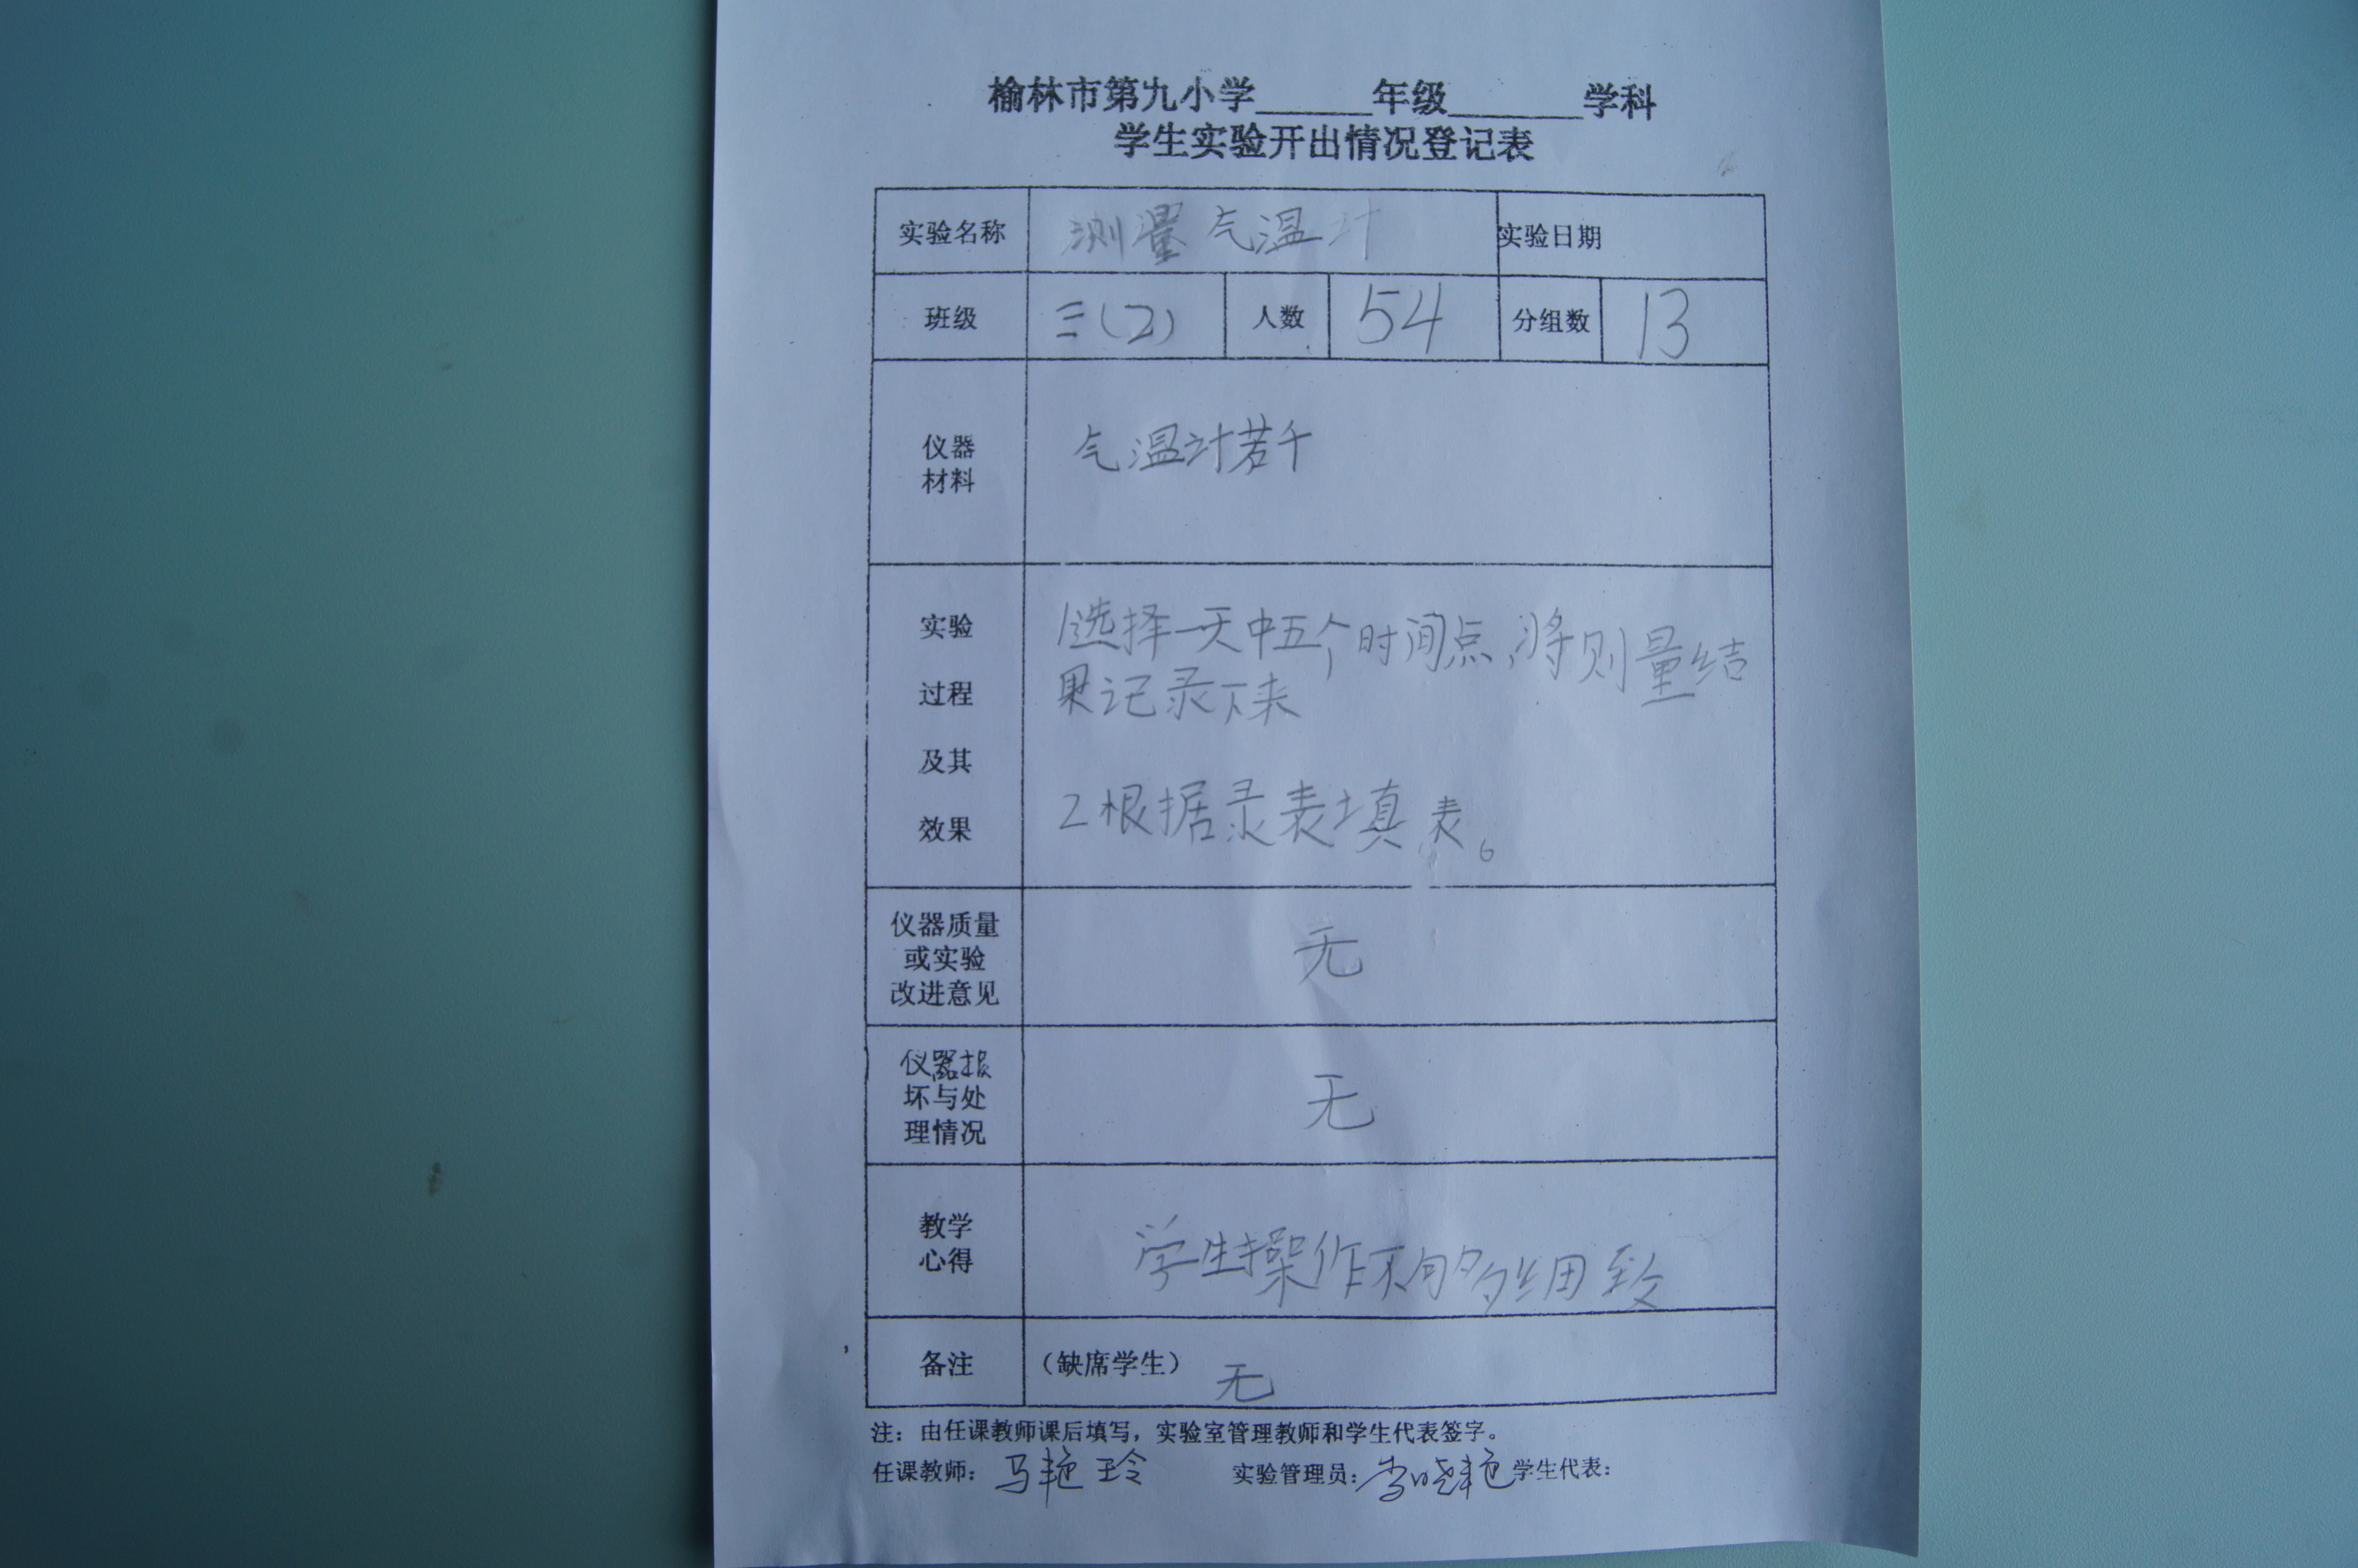 榆林市第九小学______年级_______学科
学生实验开出情况登记表
实验名称 测量气温计 实验日期
班级 三(2) 人数 54 分组数 13
仪器
材料
气温计若干
实验
过程
及其
效果
1选择一天中五个时间点,将则量结
果记录下来
2根据录表填表。
仪器质量
或实验
改进意见
无
仪器损
坏与处
理情况
无
教学
心得
学生操作不够细致
备注 (缺席学生) 无
注：由任课教师课后填写，实验室管理教师和学生代表签字。
任课教师：马艳玲 实验管理员：李晓艳 学生代表：